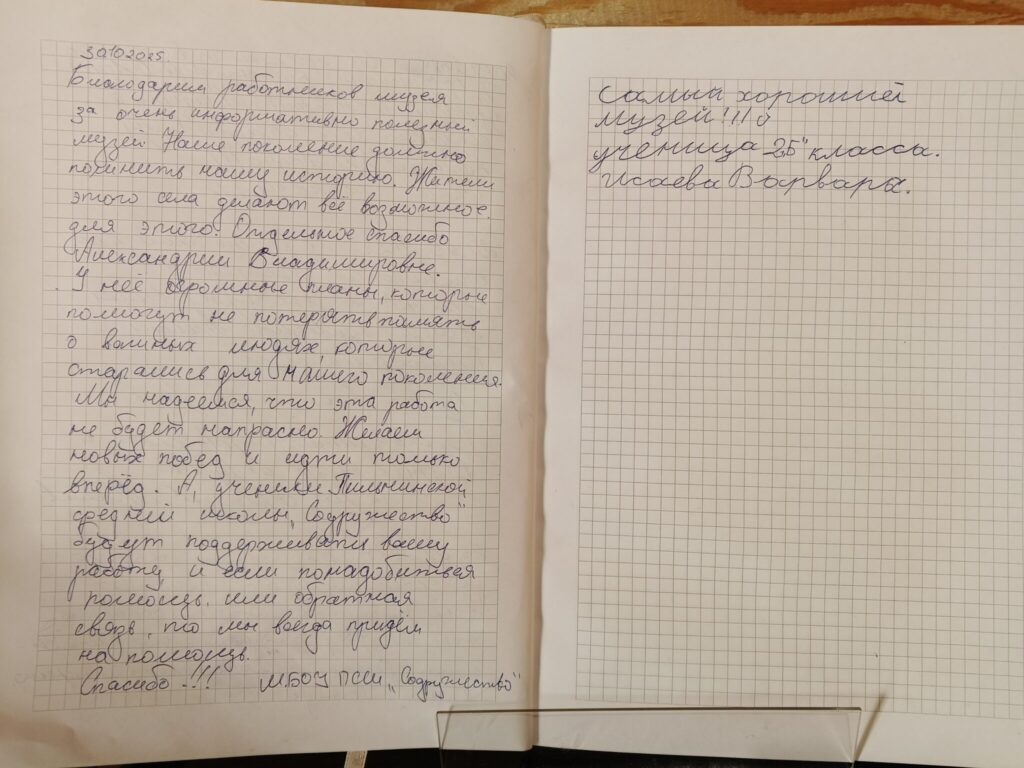 30.10.2025.
Благодарим работников музея
за очень информативно полезный
музей. Наше поколение должно
помнить нашу историю. Жители
этого села делают всё возможное
для этого. Отдельное спасибо
Александрии Владимировне.
У неё огромные планы, которые
помогут не потерять память
о важных людях, которые
старались для нашего поколения.
Мы надеемся, что эта работа
не будет напрасно. Желаем
новых побед и идти только
вперёд. А, ученики Пильнинской
средний школы „Содружество"
будут поддерживать вашу
работу и если понадобиться
помощь или обратная
связь, то мы всегда придём
на помощь.
Спасибо!!! МБОУ ПСШ „Содружество"
самый хороший
музей!!!
ученица 2„Б" класса.
Исаева Варвара.